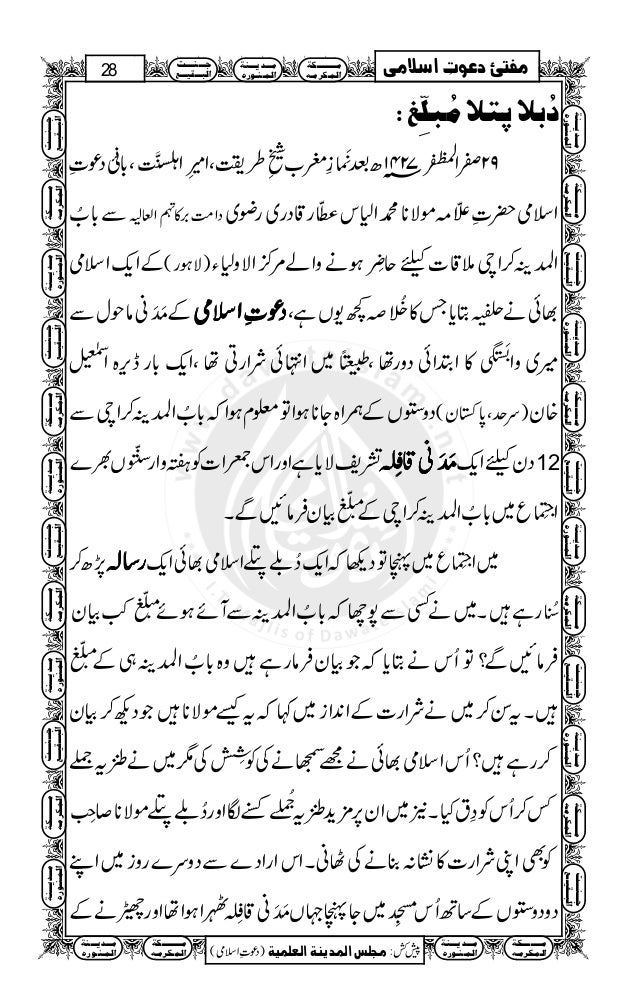 28
مفتیٔ دعوتِ اسلامی
دُبلا پتلا مُبلّغ :
۲۹ صفر المظفر ۱۴۲۷ھ بعد نَمازِ مغرب شیخِ طریقت، امیرِ اہلسنّت ، بانیٔ دعوتِ
اسلامی حضرتِ علّامہ مولانا محمد الیاس عطّار قادری رضوی دامت برکاتہم العالیہ سے بابُ
المدینہ کراچی ملاقات کیلئے حاضِر ہونے والے مرکز الاولیاء (لاہور) کے ایک اسلامی
بھائی نے حلفیہ بتایا جس کا خُلاصہ کچھ یوں ہے، دعوتِ اسلامی کے مَدَنی ماحول سے
میری وابَستگی کا ابتدائی دور تھا ،طبیعتًا میں انتہائی شرارتی تھا ،ایک بار ڈیرہ اسمٰعیل
خان (سرحد، پاکستان) دوستوں کے ہمراہ جانا ہوا تو معلوم ہوا کہ بابُ المدینہ کراچی سے
12 دن کیلئے ایک مَدَنی قافِلہ تشریف لایا ہے اور اس جمعرات کو ہفتہ وار سنّتوں بھرے
اجتماع میں بابُ المدینہ کراچی کے مبلّغ بیان فرمائیں گے۔
میں اجتِماع میں پہنچا تو دیکھا کہ ایک دُبلے پتلے اسلامی بھائی ایک رسالہ پڑھ کر
سُنا رہے ہیں ۔میں نے کسی سے پوچھا کہ بابُ المدینہ سے آئے ہوئے مبلّغ کب بیان
فرمائیں گے؟ تو اُس نے بتایا کہ جو بیان فرما رہے ہیں وہ بابُ المدینہ ہی کے مبلّغ
ہیں۔ یہ سن کر میں نے شرارت کے انداز میں کہا کہ یہ کیسے مولانا ہیں جو دیکھ کر بیان
کر رہے ہیں؟ اُس اسلامی بھائی نے مجھے سمجھانے کی کوشش کی مگر میں نے طنزیہ جملے
کس کر اُس کو دِق کیا۔ نیز میں ان پر مزید طنزیہ جُملے کسنے لگا اور دُبلے پتلے مولانا صاحِب
کو بھی اپنی شرارت کا نشانہ بنانے کی ٹھانی۔ اس ارادے سے دوسرے روز میں اپنے
دو دوستوں کے ساتھ اُس مسجِد میں جا پہنچا جہاں مَدَنی قافِلہ ٹھہرا ہوا تھا اور چھیڑنے کے
پیش کش: مجلس المدینۃ العلمیۃ (دعوتِ اسلامی)